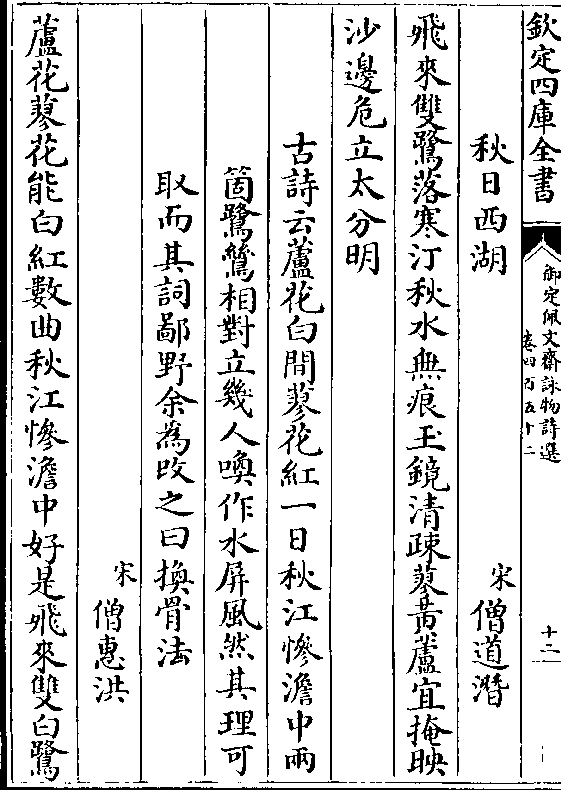 欽定四庫全書
御定佩文齋詠物詩選
卷四百五十二
十二
秋日西湖
宋 僧道潛
飛來雙鷺落寒汀秋水無痕玉鏡清疎蓼黃蘆宜掩映
沙邊危立太分明
古詩云蘆花白間蓼花紅一日秋江慘澹中兩
箇鷺鷥相對立幾人喚作水屏風然其理可
取而其詞鄙野余為改之曰換骨法
宋 僧惠洪
蘆花蓼花能白紅數曲秋江慘澹中好是飛來雙白鷺